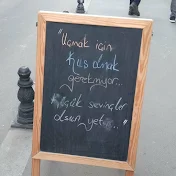 "Uçmak için
Kuş olmak
gerekmiyor..
Küçük sevinçler
olsun yeter.."